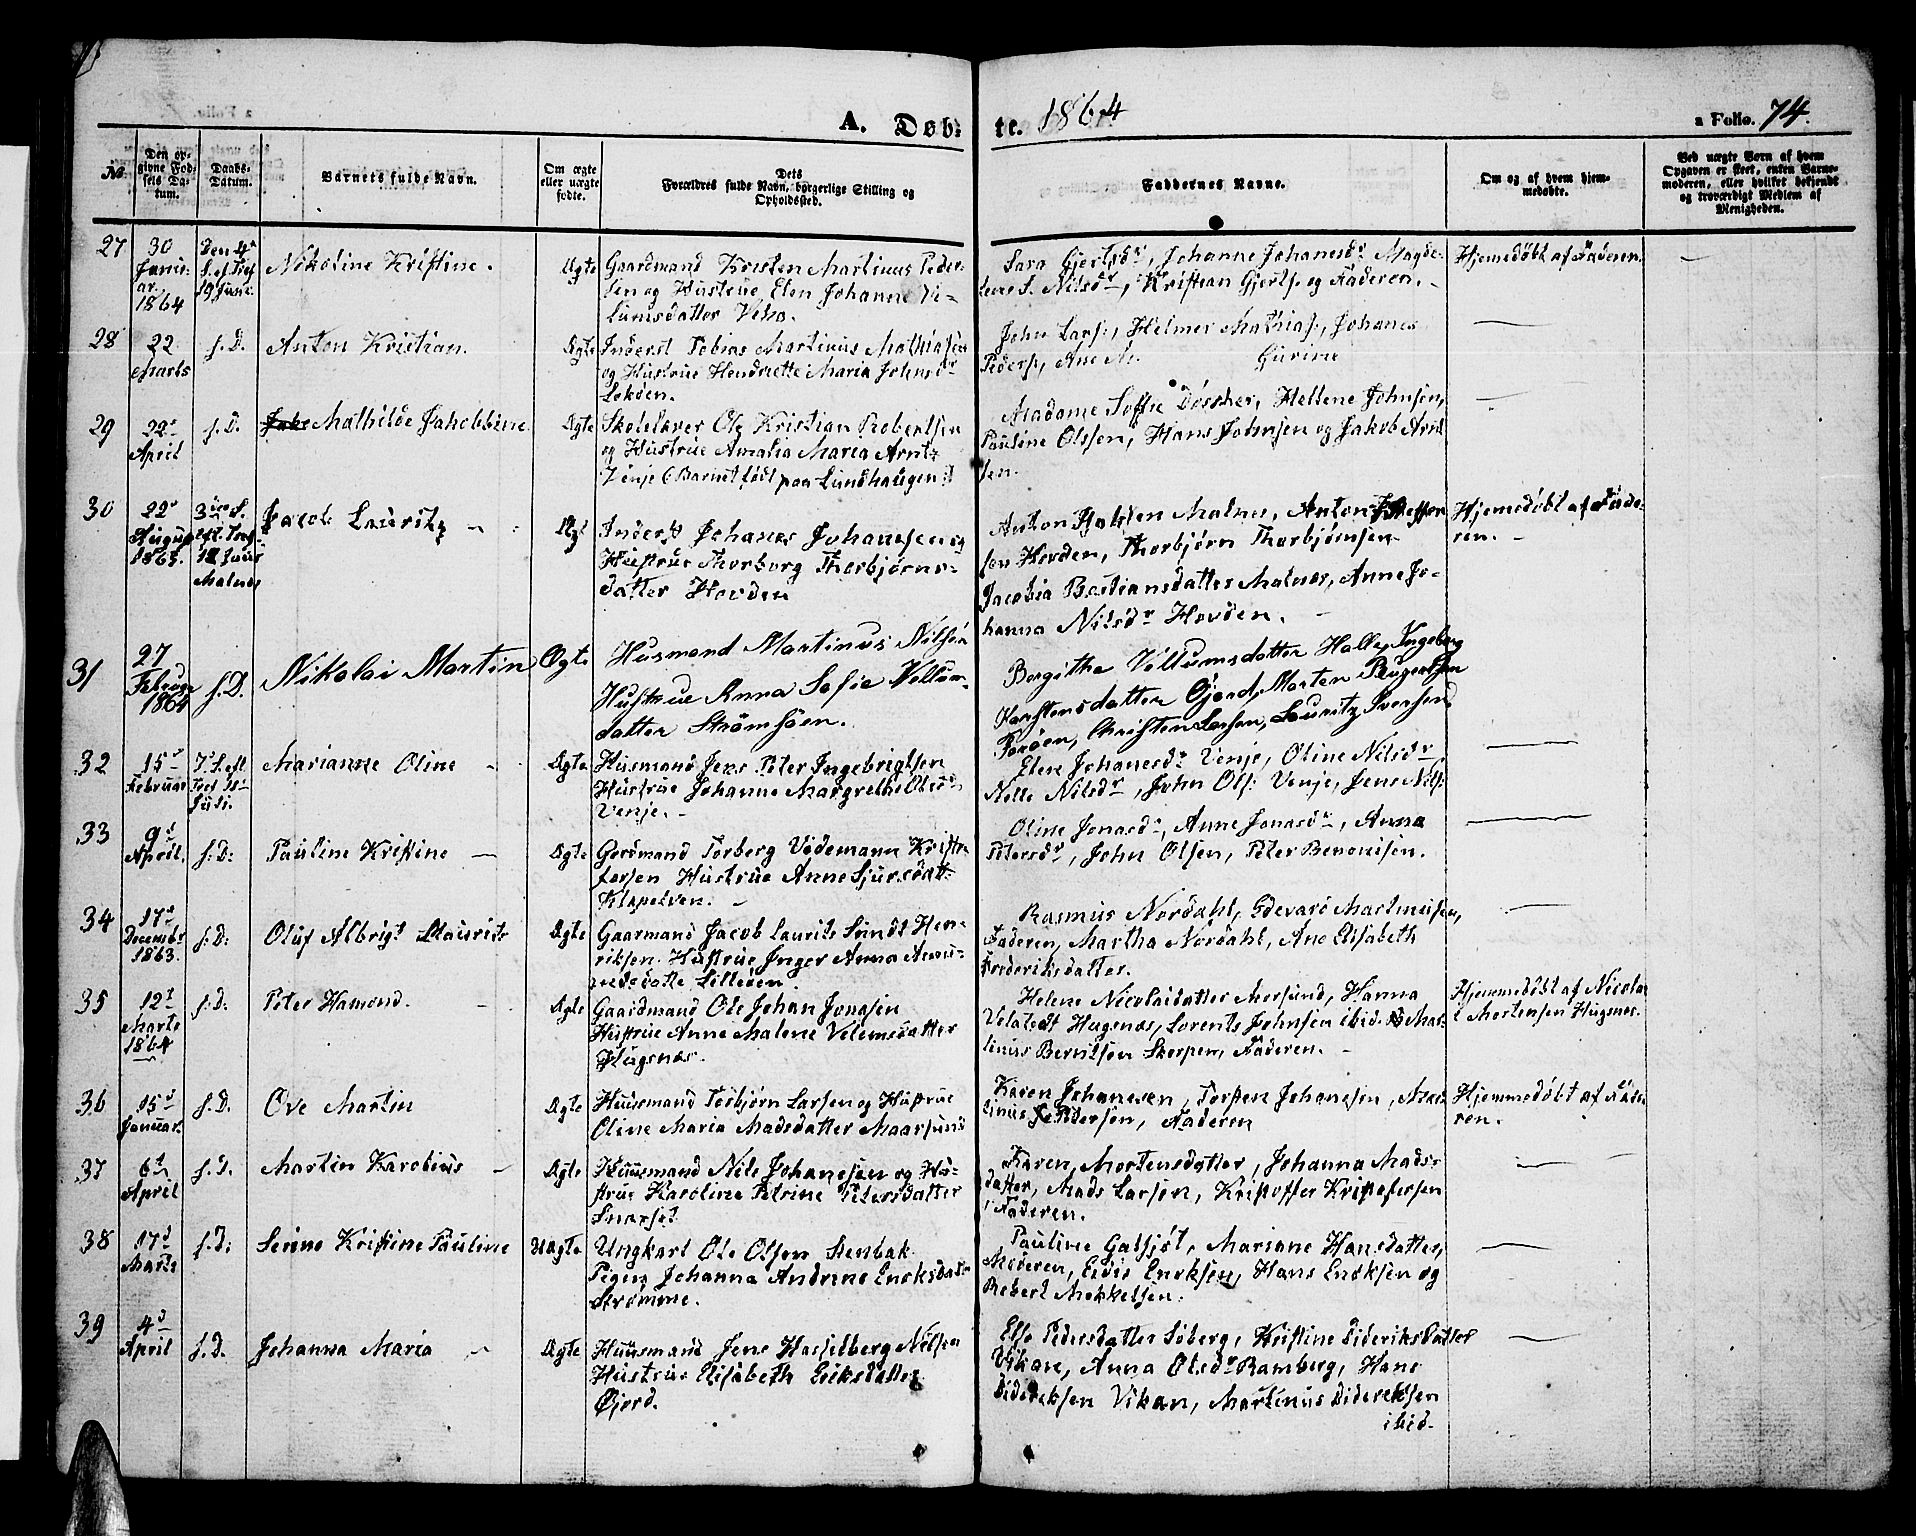 A. Døb-
te. 1864
a Folio. 74.
No.
Den op-
givne Fød-
sels Da-
tum.
Daabs-
Datum.
Barnets fulde Navn.
Om ægte
eller uægte
fødte.
Dets
Forældres fulde Navn, borgerlige Stilling og
Opholdssted.
Faddernes Navne.
Om og af hvem hjem-
medøbte.
Ved uægte Børn af hvem
Opgaven er skeet, enten Barne-
moderen, eller hvilket bekjendt
og troværdigt Medlem af
Menigheden.
27
30
Janu-
ar
1864
Den 4de
S. ef. Tref
19 Juni
Nikoline Kristine.
Ægte
Gaardmand Kristen Martinus Peder-
sen og Hustrue Elen Johanne Vi-
lumsdatter Veha.
Sara Gjertsdr, Johanne Johanesdr Magde-
lene S. Nilsdr, Kristian Gjerts. og Faderen.
Hjemedøbt af Faderen.
28
22
Marts
s. D.
Anton Kristian.
Ægte
Inderst Tobias Martinus Mathiasen
og Hustrue Hendriette Maria Johnsdr
Lekden.
John Lars:, Helmer Mathias:, Johanes
Peders:, Ane M. Gurine
29
22d
April
s. D.
Mathilde Jakobbine
Ægte
Skolelærer Ole Kristian Robertsen
og Hustrue Amalia Maria Arntz
Venje (Barnet født paa Lundhaugen)
Madame Soffie Dösscher, Hellene Johnsen,
Pauline Olssen, Hans Johnsen og Jakob Arit-
sen.
30
22d
August
1863.
3die S.
eft. Tref
12 Juni
Malnes
Jacob Lauritz
Ægt
Inderst Johanes Johanesen og
Hustrue Thorborg Thorbjørns-
datter Hovden
Anton Halsten Malnes, Anton Steffen
sen Hovden, Thorbjørn Thorbjørnsen
Jacobia Bastiansdatter Malnes, Anne Jo-
hanna Nilsdr Hovden.
Hjemedøbt af Fade-
ren.
31
27
Februar
1864
s. D.
Nikolai Martin
Ægte
Husmand Martinus Nilsen
Hustrue Anna Sofie Vellum-
datter Strømsöen.
Bergithe Villumsdatter Halle, Ingeborg
Karstensdatter Gjerd, Morten Reugertsen
Forøen, Christen Larsen, Lauritz Iversen
32
15d
Februar
7. S. eft
Tref 10
Juli.
Marianne Oline
Ægte
Husmand Jens Peter Ingebrigtsen
Hustrue Johanne Margrethe Olesd.
Venje.
Elen Johanesdr Venje, Oline Nilsdr
Nelle Nilsdr, John Ols: Venje, Jens Nils:
33
9d
April.
s. D:
Pauline Kristine
Ægte
Gardmand Torberg Vedemann Kristo
fersen Hustrue Anne Sjursdatt.
Klapelven.
Oline Jonasdr, Anne Jonasdr, Anna
Petersdr, John Olsen, Peter Benonisen.
34
17d
Decembr
1863.
s. D:
Oluf Albrigt Laurits
Ægte
Gaarmand Jacob Laurits Sundt Hen-
riksen. Hustrue Inger Anna Amu-
ndsdatte Lilleöen.
Rasmus Nordahl, Edevard Martinusen,
Faderen, Martha Nordahl, Ane Elisabeth
Frederiksdatter.
35
12t
Marts
1864
s. D:
Peter Hamond.
Ægte
Gaardmand Ole Johan Jonasen
Hustrue Anne Malene Velemsdatter
Hugenæs.
Helene Nicolaisdatter Morsund, Hanna
Velatedt Hugenæs, Lorents Johnsen ibid. Mar-
tinius Berntsen Skorpen, Faderen.
Hjemmedøbt af Nicolai
Mortensen Hugenæs.
36
15d
Januar.
s. D.
Ove Martin
Ægte
Huusmand Torbjørn Larsen og Hustrue
Oline Maria Madsdatter Maarsund
Karen Johanesen, Torsten Johanesen,
linus Pedersen, Faderen
Hjemmedøbt af Fade
ren.
37
6t
April
s. D.
Martin Karolius
Ægte
Huusmand Nils Johanesen og Hu-
strue Karoline Petrine Petersdatter
Snarset
Karen Mortensdatter, Johanna Mads-
datter, Mads Larsen, Kristoffer Kristofersen
Faderen.
38
17d
Marts
s. D:
Serine Kristine Pauline
Uægte
Ungkarl Ole Olsen Stenbak
Pigen Johanna Andrine Enoksdatter
Strømme.
Pauline Gatsjøt, Mariane Hansdatter,
Moderen, Eidis Enoksen, Hans Enoksen og
Robert Mekkelsen.
39
4d
April
s. D.
Johanna Maria
Ægte
Huusmand Jens Hasselberg Nilsen
Hustrue Elisabeth Eriksdatter
Gjerd.
Else Pedersdatter Søberg, Kristine Dideriksdatter
Vikan, Anna Olsdr Ramberg, Hans
Dideriksen Vikan, Martinus Dideriksen
ibid.